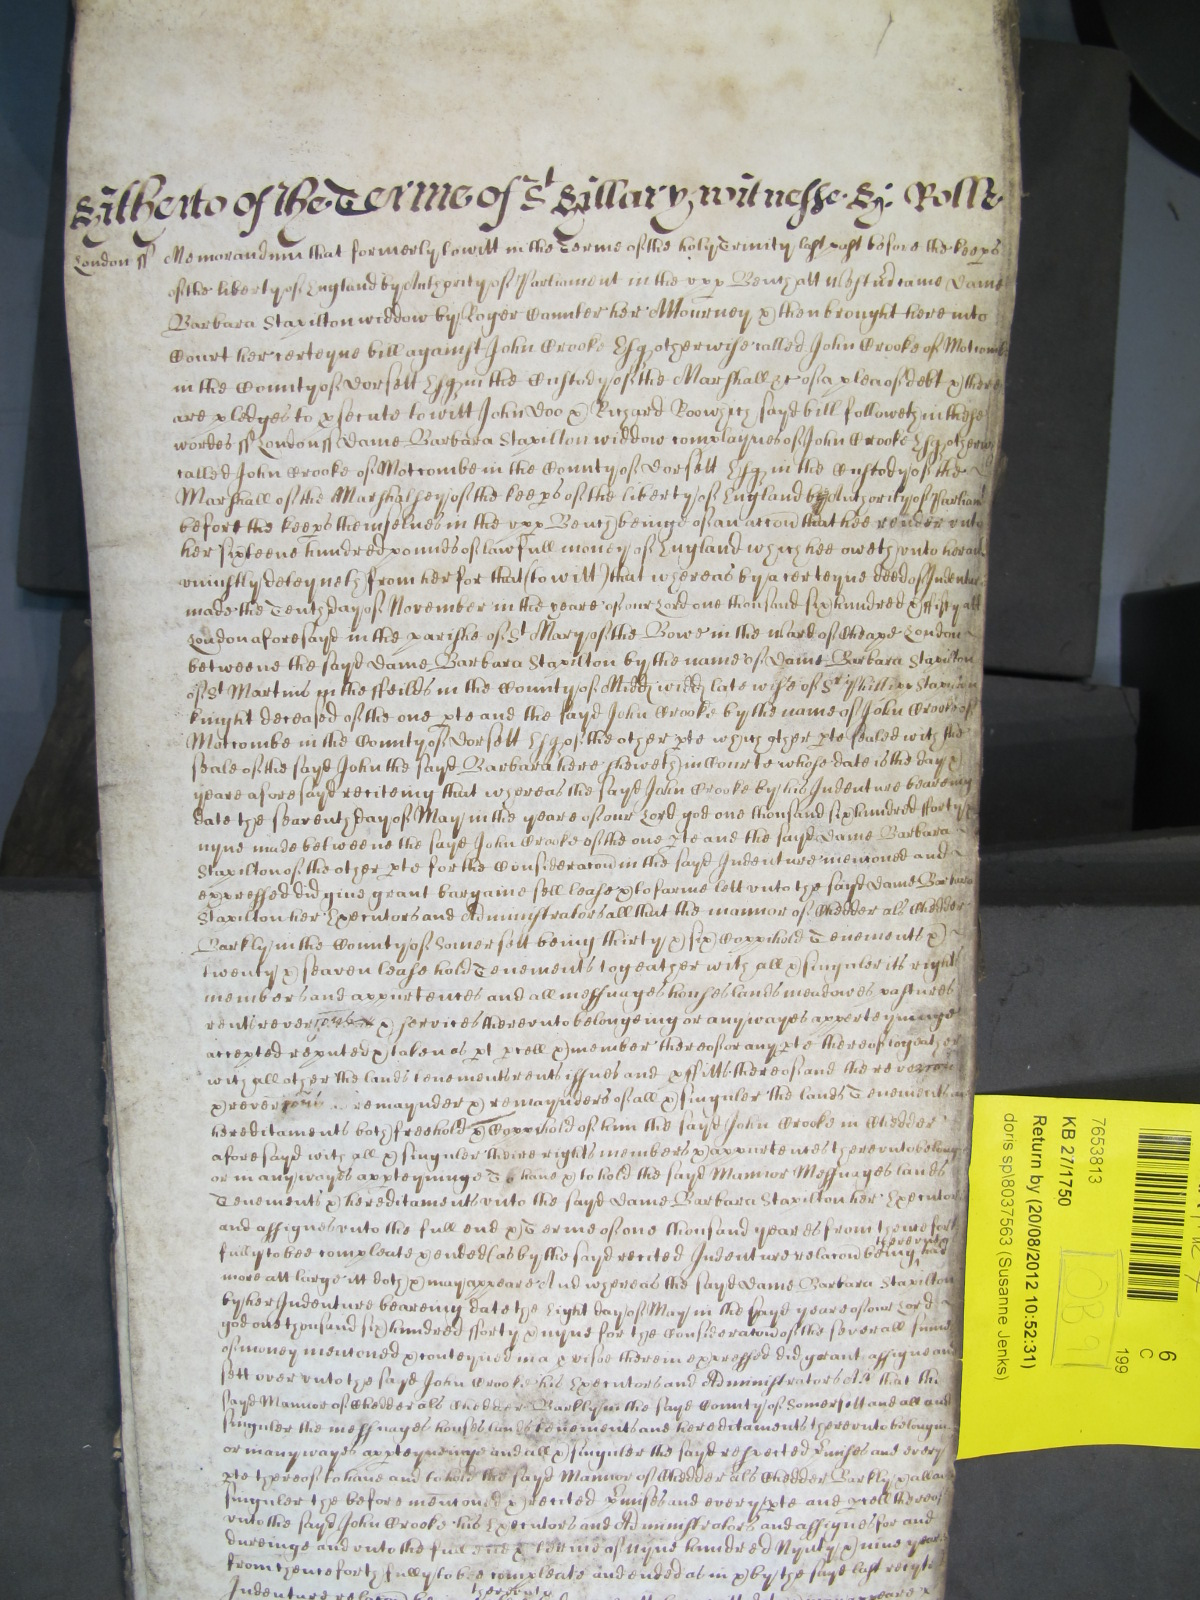 Hitherto of the Terme of St Hillary witnesse Hy: Rolle
London ss Memorandum that formerly to witt in the Terme of the holy Trinity last past before the keeps
of the liberty of England by Authority of Parliament in the upp Bench att Westm came Dame
Barbara Stapilton widdow by Roger her Attourney & then brought here into
Court her certeyne bill against John Crooke Esq otherwise called John Crooke of Motcombe
in the County of Dorsett Esq in the Custody of the Marshall &c of a plea of debt & there
are pledges to psecute to witt John Doo & Richard Roo which sayd bill followeth in these
wordes ss London ss Dame Barbara Stapilton widdow complaynes of John Crooke Esq otherwise
called John Crooke of Motcombe in the County of Dorsett Esq in the Custody of the
Marshall of the Marshalsey of the keeps of the liberty of England by Authority of Parliamt
before the keeps themselves in the upp Bench beinge of an accon that hee render unto
her sixteene hundred pounds of lawfull money of England which hee oweth unto her and
uniustly deteyneth from her for that (to witt) that whereas by a certeyne deed of Indenture
made the Tenth day of November in the yeare of our Lord one thousand six hundred & fifty att
London aforesayd in the parishe of St Mary of the Bowe in the ward of Cheape London
betweene the sayd Dame Barbara Stapilton by the name of Dame Barbara Stapilton
of St Martins in the ffeilds in the County of Midd widd late wife of Sr Phillipp Stapilton
knight deceased of the one pte and the sayd John Crooke by the name of John Crooke of
Motcombe in the County of Dorsett Esq of the other pte which other pte sealed with the
seale of the sayd John the sayd Barbara here sheweth in Courte whose date is the day &
yeare aforesayd reciteing that whereas the sayd John Crooke by his Indenture beareing
date the seaventh day of May in the yeare of our Lord god one thousand six hundred fforty &
nyne made betweene the sayd John Crooke of the one pte and the sayd Dame Barbara
Stapilton of the other pte for the Consideracon in the sayd Indenture menconed and
expressed did give grant bargaine sell lease & to farme lett unto the sayd Dame Barbara
Stapilton her Executors and Administrators all that the mannor of Chedder als Chedder
Barkly in the County of Somersett being thirty & six Coppihold Tenements &
twenty & seaven lease hold Tenements togeather with all & singuler its rights
members and appurtences and all messuages houses lands meadowes pastures
rents & services thereunto belongeing or any wayes apperteyninge
accepted reputed & taken as pt pcell & member thereof or any pte thereof togeather
with all other the lands tenements rents issues and pffitts thereof and the revercon
& revercons remaynder & remaynders of all & singuler the lands Tenements
hereditaments both freehold & Coppihold of him the sayd John Crooke in Chedder
aforesayd with all & singuler theire rights members & appurtences thereunto belonginge
or in any wayes appteyninge To have & to hold the sayd Mannor Messuages lands
Tenements & hereditaments unto the sayd Dame Barbara Stapilton her Executors
and assignes unto the full end & Terme of one thousand yeares from thenceforth
fully to bee compleate & ended (as by the sayd recited Indenture relacon being thereunto had
more att large itt doth & may appeare And whereas the sayd Dame Barbara Stapilton
by her Indenture beareing date the Eight day of May in the sayd yeare of our Lord
god one thousand six hundred fforty & nyne for the Consideracon of the severall summes
of money menconed & conteyned in a pviso therein expressed did grant assigne and
sett over unto the sayd John Crooke his Executors and Administrators All that the
sayd Mannor of Chedder als Chedder Barkly in the sayd County of Somersett and all and
singuler the messuages houses lands tenements and hereditaments thereunto belonginge
or in any wayes appteyneinge and all & singuler the sayd respected pmises and every
pte thereof to have and to hold the sayd Mannor of Chedder als Chedder Barkly & all and
singuler the before menconed & recited pmises and every pte and pcell thereof
unto the sayd John Crooke his Executors and Administrators and assignes for and
dureinge and unto the full end & terme of nyne hundred Nynty & nine yeares
from thenceforth fully to bee compleate and ended as in & by the sayd last recyted
Indenture relacon thereunto appeare &
6
C
199
7653813
KB 27/1750
Return by (20/08/2012 10:52:31)
doris spl8037563 (Susanne Jenks)